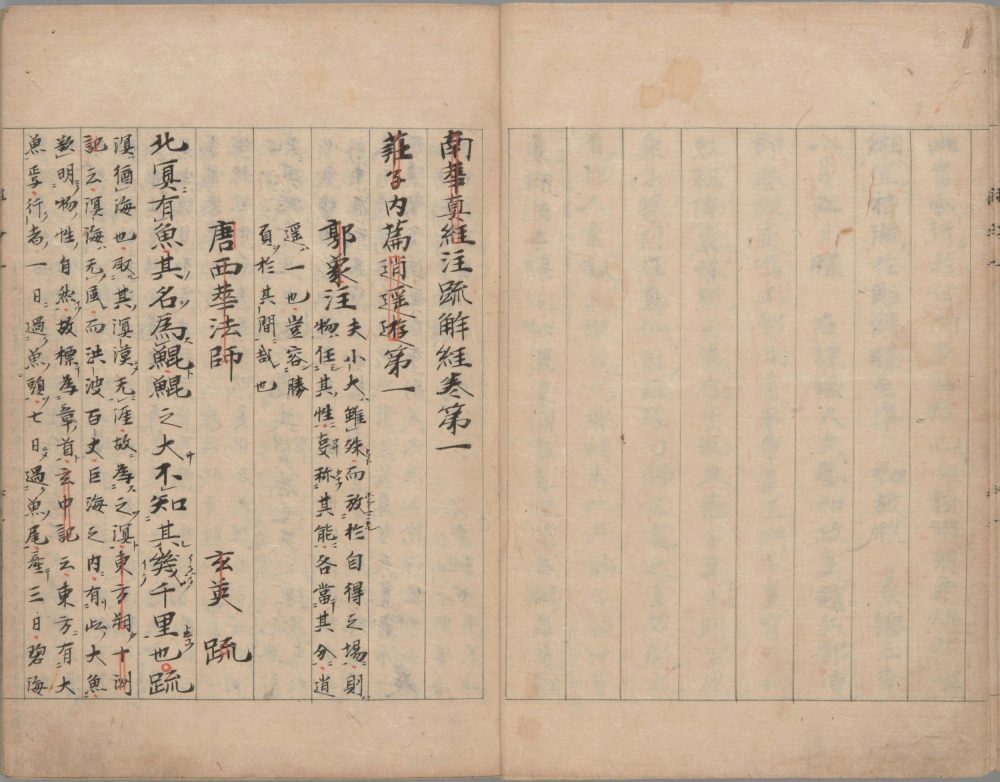 南華真経注疏解経巻第一
荘子内篇逍遥遊第一
郭象注
夫小大雖殊而放於自得之場則
物任其性事称其能各當其分逍
遥一也豈容勝
負於其間哉也
唐西華法師 玄英 疏
北冥有魚其名為鯤鯤之大不知其幾千里也疏
溟猶海也取其溟漠无涯故為之溟東方朔十洲
記云溟海无風而洪波百丈巨海之内有此大魚
欲明物性自然故標為章首玄中記云東方有大
魚焉行者一日過魚頭七日過魚尾産三日碧海